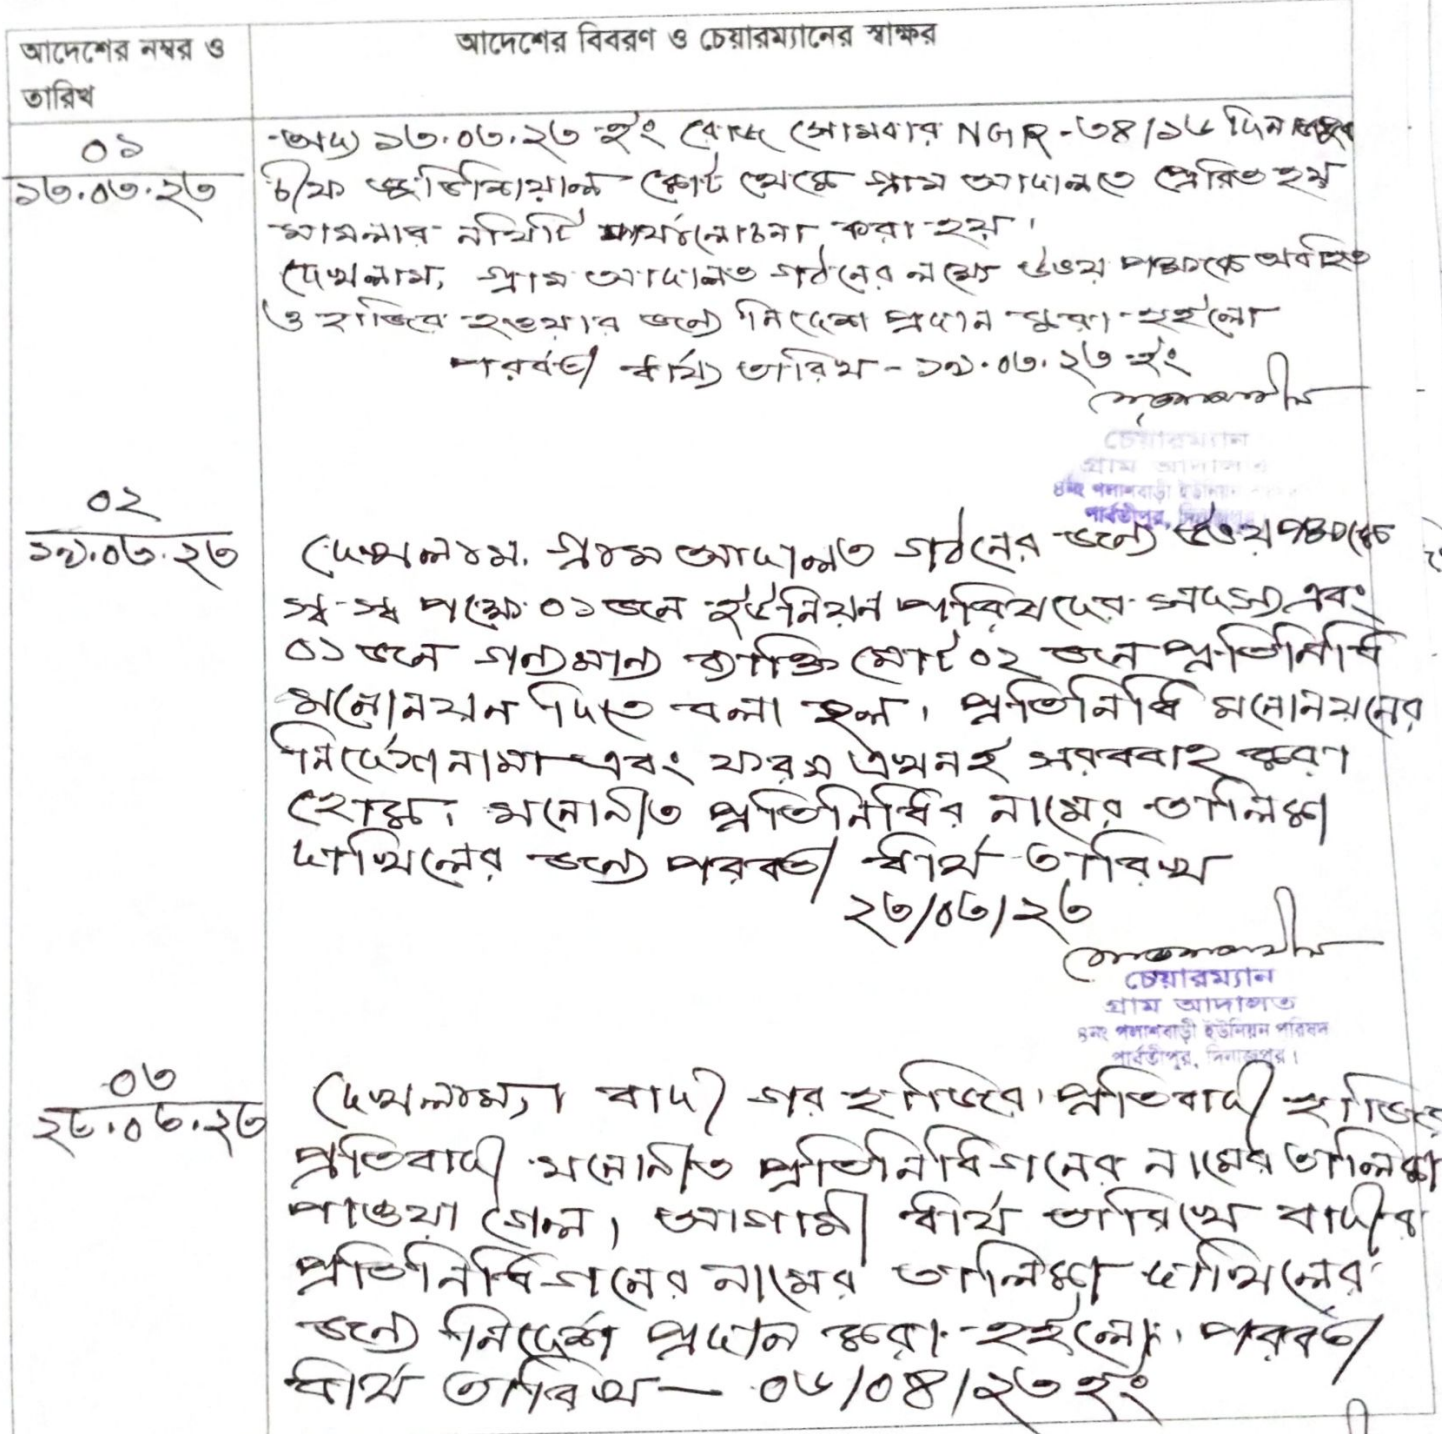 আদেশের নম্বর ও
তারিখ
আদেশের বিবরণ ও চেয়ারম্যানের স্বাক্ষর
০১
১৩.০৩.২৩
অদ্য ১৩.০৩.২৩ ইং রোজ সোমবার NGR - ৩৪/১৮ দিনাজপুর
চীফ জুডিশিয়াল কোর্ট থেকে গ্রাম আদালতে প্রেরিত হয়
মামলার নথিটি পর্যালোচনা করা হয়।
দেখলাম, গ্রাম আদালত গঠনের লক্ষ্যে উভয় পক্ষকে অবহিত
ও হাজির হওয়ার জন্য নির্দেশ প্রদান করা হইলো
পরবর্তী ধার্য্য তারিখ - ১৯.০৩.২৩ ইং
চেয়ারম্যান
গ্রাম আদালত
৪নং পলাশবাড়ী ইউনিয়ন
পার্বতীপুর, দিনাজপুর
০২
১৯.০৩.২৩
দেখলাম, গ্রাম আদালত গঠনের জন্য উভয় পক্ষকে
স্ব-স্ব পক্ষে ০১ জন ইউনিয়ন পরিষদের সদস্য এবং
০১ জন গন্যমান্য ব্যক্তি মোট ০২ জন প্রতিনিধি
মনোনয়ন দিতে বলা হল। প্রতিনিধি মনোনয়নের
নির্দেশনামা এবং ফরম এখনই সরবরাহ করা
হোক। মনোনীত প্রতিনিধির নামের তালিকা
দাখিলের জন্য পরবর্তী ধার্য তারিখ
২৩/০৩/২৩
চেয়ারম্যান
গ্রাম আদালত
৪নং পলাশবাড়ী ইউনিয়ন পরিষদ
পার্বতীপুর, দিনাজপুর।
০৩
২৮.০৩.২৩
দেখলাম, বাদী গর হাজির। প্রতিবাদী হাজির
প্রতিবাদী মনোনীত প্রতিনিধিগনের নামের তালিকা
পাওয়া গেল। আগামী ধার্য তারিখে বাদীর
প্রতিনিধিগনের নামের তালিকা দাখিলের
জন্য নির্দেশ প্রদান করা হইলো। পরবর্তী
ধার্য তারিখ — ০৬/০৪/২৩ ইং